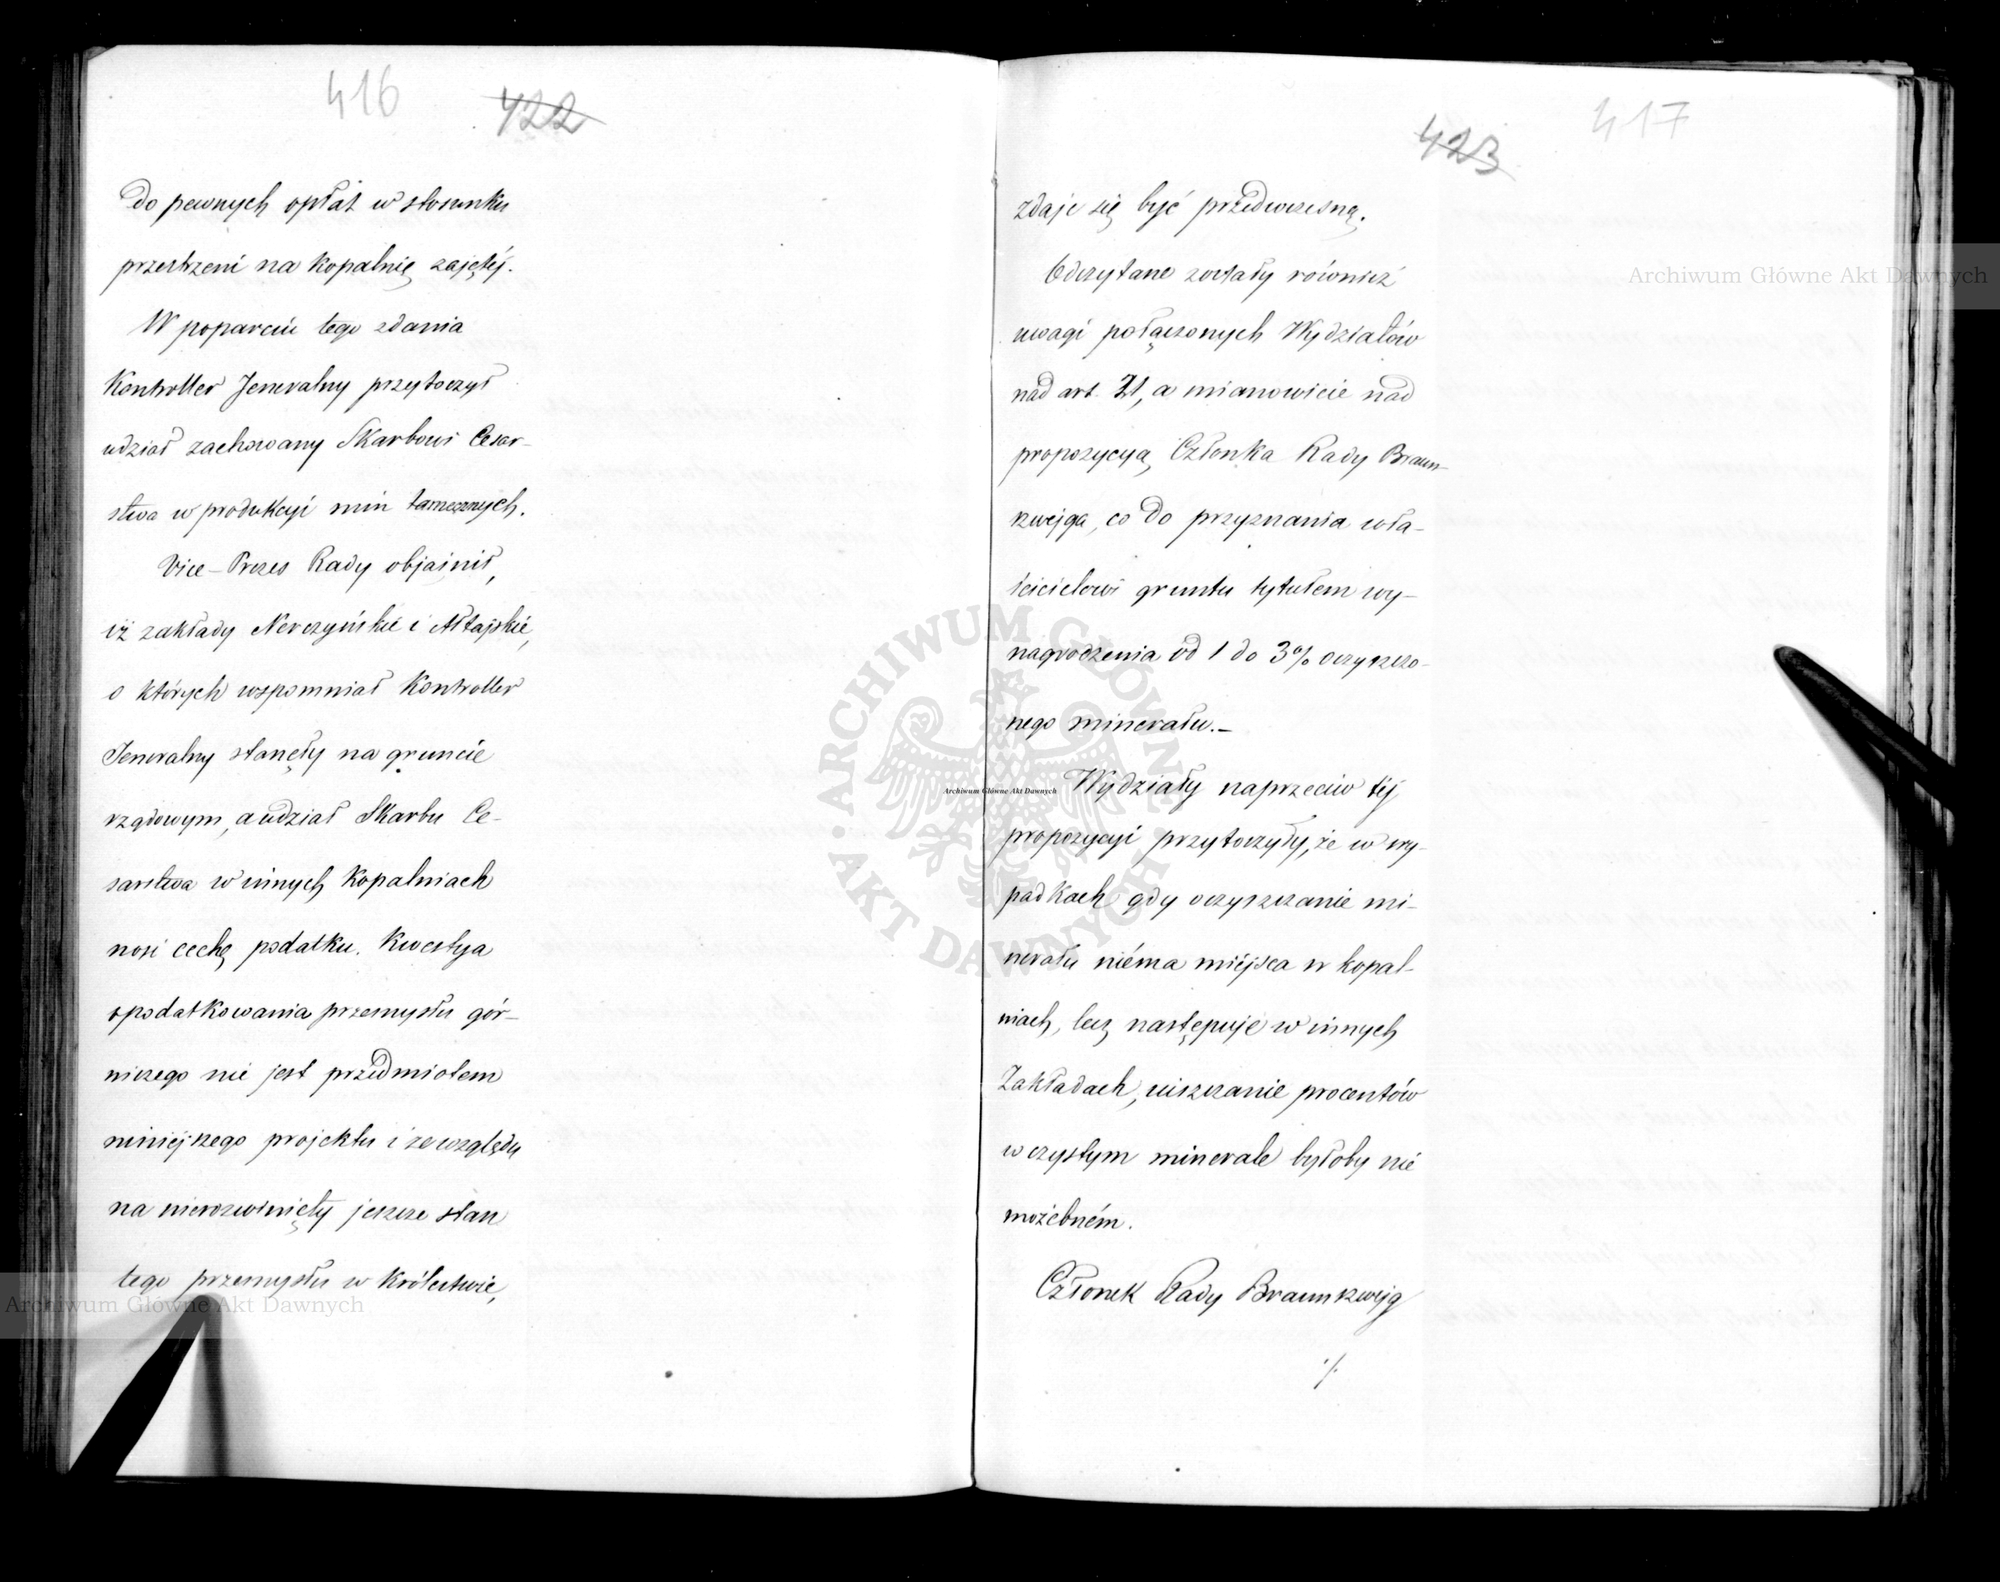 416 422
do pewnych opłat w stosunku
przestrzeni na kopalnię zajętéj.
W poparciu tego zdania
Kontroller Jeneralny przytoczył
udział zachowany Skarbowi Cesar-
stwa w produkcyi min tamecznych.
Vice-Prezes Rady objaśnił,
iż zakłady Nerczyńskie i Ałtajskie,
o których wspomniał Kontroller
Jeneralny stanęły na gruncie
rządowym, a udział Skarbu Ce-
sarstwa w innych kopalniach
nosi cechę podatku. Kwestya
opodatkowania przemysłu gór-
niczego nie jest przedmiotem
niniéjszego projektu i ze względu
na nierozwinięty jeszcze stan
tego przemysłu w Królestwie,
423 417
zdaje się być przedwczesną.
Odczytane zostały również
uwagi połączonych Wydziałów
nad art. 21, a mianowicie nad
propozycyą Członka Rady Braun-
szwejga, co do przyznania wła-
ścicielowi gruntu tytułem wy-
nagrodzenia od 1 do 3% oczyszczo-
nego minerału.-
Wydziały naprzeciw téj
propozycyi przytoczyły, że w wy-
padkach gdy oczyszczanie mi-
nerału niéma miéjsca w kopal-
niach, lecz następuje w innych
Zakładach, uiszczanie procentów
w czystym minerale byłoby nie
możebném.
Członek Rady Braunszwejg
./.
Archiwum Główne Akt Dawnych
Archiwum Główne Akt Dawnych
Archiwum Główne Akt Dawnych
ARCHIWUM GŁÓWNE AKT DAWNYCH